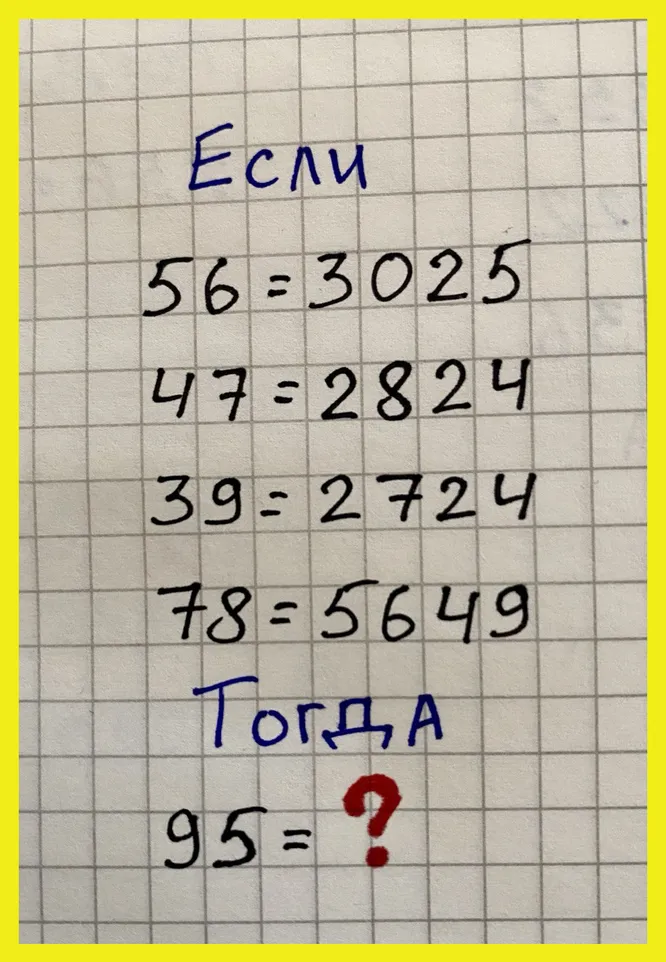 Если
56=3025
47=2824
39=2724
78=5649
Тогда
95=?